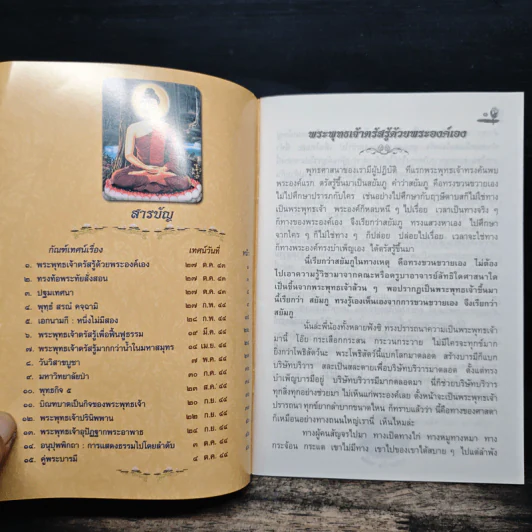 สารบัญ
กัณฑ์เทศน์เรื่อง เทศน์วันที่
๑. พระพุทธเจ้าตรัสรู้ด้วยพระองค์เอง ๒๗ ต.ค. ๔๓
๒. ทรงท้อพระทัยสั่งสอน ๒๗ ต.ค. ๔๓
๓. ปฐมเทศนา ๒๗ ต.ค. ๔๓
๔. พุทธํ สรณํ คจฺฉามิ ๒๗ ก.พ. ๔๔
๕. เอกนามกึ : หนึ่งไม่มีสอง ๒๗ ก.พ. ๔๔
๖. พระพุทธเจ้าตรัสรู้เพื่อฟื้นฟูธรรม ๑๙ มี.ค. ๔๔
๗. พระพุทธเจ้าตรัสรู้มากกว่าน้ำในมหาสมุทร ๑๙ เม.ย. ๔๔
๘. วันวิสาขบูชา ๗ พ.ค. ๔๔
๙. มหาวิทยาลัยป่า ๓๐ ก.ค. ๔๔
๑๐. พุทธกิจ ๕ ๒๓ ส.ค. ๔๔
๑๑. บิณฑบาตเป็นกิจของพระพุทธเจ้า ๒๐ ก.ย. ๔๔
๑๒. พระพุทธเจ้าปรินิพพาน ๒๒ ก.ย. ๔๔
๑๓. พระพุทธเจ้าอุปัฏฐากพระอาพาธ ๒๔ ก.ย. ๔๔
๑๔. อนุปุพพิกถา : การแสดงธรรมไปโดยลำดับ ๓ ต.ค. ๔๔
๑๕. คู่พระบารมี ๔ ต.ค. ๔๔
พระพุทธเจ้าตรัสรู้ด้วยพระองค์เอง
พุทธศาสนาของเรามีผู้ปฏิบัติ ที่แรกพระพุทธเจ้าทรงค้นพบ
พระองค์แรก ตรัสรู้ขึ้นมาเป็นสยัมภู คำว่าสยัมภู คือทรงขวนขวายเอง
ไม่ไปศึกษาปรารภกับใคร เช่นอย่างไปศึกษากับฤาษีดาบสก็ไม่ใช่ทาง
เป็นพระพุทธเจ้า พระองค์ก็หลบหนี ๆ ไปเรื่อย เวลาเป็นทางจริง ๆ
ก็ทางของพระองค์เอง จึงเรียกว่าสยัมภู ทรงแสวงหาเอง ไปศึกษา
จากใคร ๆ ก็ไม่ใช่ทาง ๆ ก็ปล่อย ปล่อยไปเรื่อย เวลาจะใช่ทาง
ก็ทางพระองค์ทรงบำเพ็ญเอง ได้ตรัสรู้ขึ้นมา
นี่เรียกว่าสยัมภูในทางเหตุ คือทรงขวนขวายเอง ไม่ต้อง
ไปเอาความรู้วิชามาจากคณะหรือครูบาอาจารย์ลัทธิใดศาสนาใด
เป็นขึ้นจากพระพุทธเจ้าล้วน ๆ พอปรากฏเป็นพระพุทธเจ้าขึ้นมา
นี้เรียกว่า สยัมภู ทรงรู้เองเห็นเองจากการขวนขวายเอง จึงเรียกว่า
สยัมภู
นั่นล่ะพี่น้องทั้งหลายฟังซิ ทรงปรารถนาความเป็นพระพุทธเจ้า
มานี้ โอ๊ย กระเสือกกระสน กระวนกระวาย ไม่มีใครจะทุกข์มาก
ยิ่งกว่าโพธิสัตว์นะ พระโพธิสัตว์นี่แบกโลกมาตลอด สร้างบารมีก็แบก
บริษัทบริวาร สละเป็นสละตายเพื่อบริษัทบริวารมาตลอด ตั้งแต่ทรง
บำเพ็ญบารมีอยู่ บริษัทบริวารมีมากตลอดมา นี่ก็ช่วยบริษัทบริวาร
ทุกสิ่งทุกอย่างช่วยมา ไม่เห็นแก่พระองค์เลย ตั้งหน้าจะเป็นพระพุทธเจ้า
ปรารถนา ทุกข์ยากลำบากขนาดไหน ก็ทราบแล้วว่า นี้คือทางของศาสดา
ก็เหมือนอย่างทางถนนใหญ่เรานี้ เห็นไหมล่ะ
ทางผู้คนสัญจรไปมา ทางเป็ดทางไก่ ทางหมูทางหมา ทาง
กระจ้อน กระแต เขาไม่มีทาง เขาไปของเขาได้สบาย ๆ ไปแต่ลำพัง